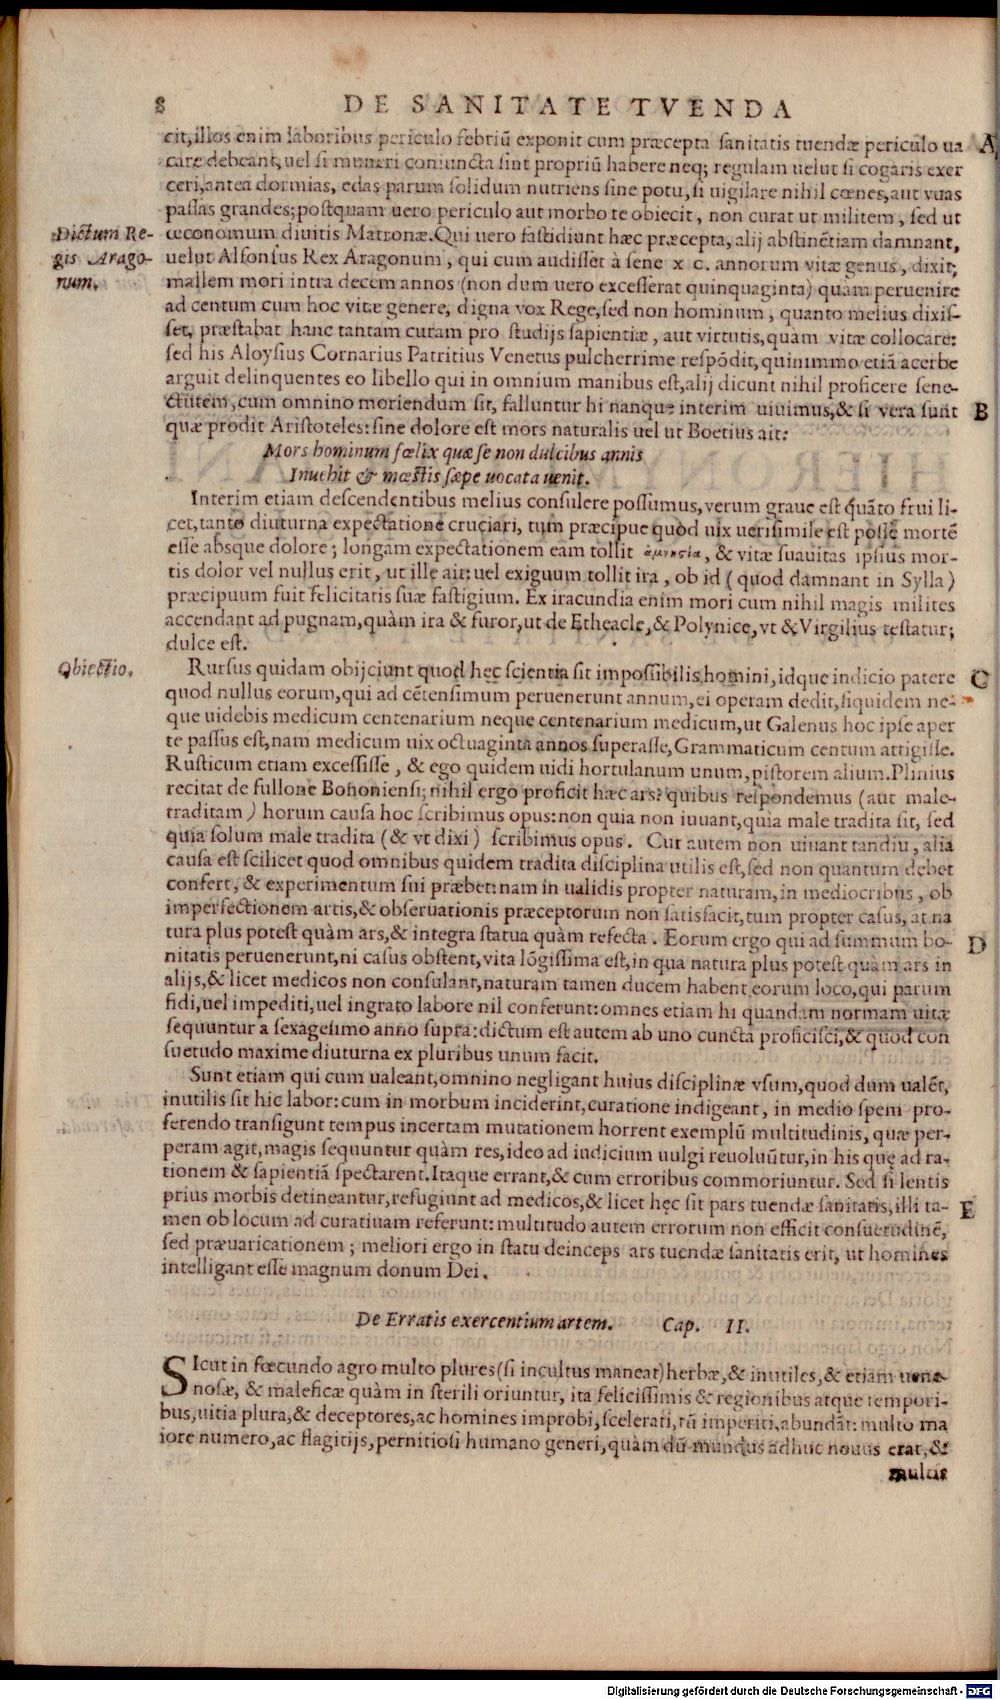 8 DE SANITATE TVENDA
cit, illos enim laboribus periculo febriũ exponit cum præcepta sanitatis tuendæ periculo ua A
care debeant, uel si muneri coniuncta sint propriũ habere neq; regulam uelut si cogaris exer
ceri, antea dormias, edas parum solidum nutriens sine potu, si uigilare nihil cœnes, aut vuas
passas grandes; postquam uero periculo aut morbo te obiecit, non curat ut militem, sed ut
Dictum Re- œconomum diuitis Matronæ. Qui uero fastidiunt hæc præcepta, alij abstinẽtiam damnant,
gis Arago- uelut Alfonsus Rex Aragonum, qui cum audisset à sene x c. annorum vitæ genus, dixit;
num. mallem mori intra decem annos (non dum uero excesserat quinquaginta) quàm peruenire
ad centum cum hoc vitæ genere, digna vox Rege, sed non hominum, quanto melius dixis-
set, præstabat hanc tantam curam pro studijs sapientiæ, aut virtutis, quàm vitæ collocare:
sed his Aloysius Cornarius Patritius Venetus pulcherrime respõdit, quinimmo etiã acerbe
arguit delinquentes eo libello qui in omnium manibus est, alij dicunt nihil proficere sene-
ctutem, cum omnino moriendum sit, falluntur hi nanque interim uiuimus, & si vera sunt B
quæ prodit Aristoteles: sine dolore est mors naturalis uel ut Boetius ait:
Mors hominum fœlix quæ se non dulcibus annis
Inuehit & mœstis sæpe uocata uenit.
Interim etiam descendentibus melius consulere possumus, verum graue est quãto frui li-
cet, tanto diuturna expectatione cruciari, tum præcipue quòd uix uerisimile est posse mortẽ
esse absque dolore; longam expectationem eam tollit ἀμνηστία, & vitæ suauitas ipsius mor-
tis dolor vel nullus erit, ut ille ait: uel exiguum tollit ira, ob id (quod damnant in Sylla)
præcipuum fuit felicitatis suæ fastigium. Ex iracundia enim mori cum nihil magis milites
accendant ad pugnam, quàm ira & furor, ut de Etheacle, & Polynice, vt & Virgilius testatur;
dulce est.
Obiectio. Rursus quidam obijciunt quod hęc scientia sit impossibilis homini, idque indicio patere C
quod nullus eorum, qui ad cẽtensimum peruenerunt annum, ei operam dedit, siquidem ne-
que uidebis medicum centenarium neque centenarium medicum, ut Galenus hoc ipse aper
te passus est, nam medicum uix octuaginta annos superasse, Grammaticum centum attigisse.
Rusticum etiam excessisse, & ego quidem uidi hortulanum unum, pistorem alium. Plinius
recitat de fullone Bononiensi; nihil ergo proficit hæc ars? quibus respondemus (aut male-
traditam) horum causa hoc scribimus opus: non quia non iuuant, quia male tradita sit, sed
quia solum male tradita (& vt dixi) scribimus opus. Cur autem non uiuant tandiu, alia
causa est scilicet quod omnibus quidem tradita disciplina utilis est, sed non quantum debet
confert, & experimentum sui præbet: nam in ualidis propter naturam, in mediocribus, ob
imperfectionem artis, & obseruationis præceptorum non satisfacit, tum propter casus, at na
tura plus potest quàm ars, & integra statua quàm refecta. Eorum ergo qui ad summum bo- D
nitatis peruenerunt, ni casus obstent, vita lõgissima est, in qua natura plus potest quàm ars in
alijs, & licet medicos non consulant, naturam tamen ducem habent eorum loco, qui parum
fidi, uel impediti, uel ingrato labore nil conferunt: omnes etiam hi quandam normam uitæ
sequuntur a sexagesimo anno supra: dictum est autem ab uno cuncta proficisci, & quod con
suetudo maxime diuturna ex pluribus unum facit.
Sunt etiam qui cum ualeant, omnino negligant huius disciplinæ vsum, quod dum ualẽt,
inutilis sit hic labor: cum in morbum inciderint, curatione indigeant, in medio spem pro-
ferendo transigunt tempus incertam mutationem horrent exemplũ multitudinis, quæ per-
peram agit, magis sequuntur quàm res, ideo ad iudicium uulgi reuoluũtur, in his quę ad ra-
tionem & sapientiã spectarent. Itaque errant, & cum erroribus commoriuntur. Sed si lentis
prius morbis detineantur, refugiunt ad medicos, & licet hęc sit pars tuendæ sanitatis, illi ta- E
men ob locum ad curatiuam referunt: multitudo autem errorum non efficit consuetudinẽ,
sed præuaricationem; meliori ergo in statu deinceps ars tuendæ sanitatis erit, ut homines
intelligant esse magnum donum Dei.
De Erratis exercentium artem. Cap. II.
SIcut in fœcundo agro multo plures (si incultus maneat) herbæ, & inutiles, & etiam uene-
nosæ, & maleficæ quàm in sterili oriuntur, ita felicissimis & regionibus atque tempori-
bus, uitia plura, & deceptores, ac homines improbi, scelerati, tũ imperiti, abundãt: multo ma
iore numero, ac flagitijs, pernitiosi humano generi, quàm dũ mundus adhuc nouus erat, &
multis
Digitalisierung gefördert durch die Deutsche Forschungsgemeinschaft - DFG